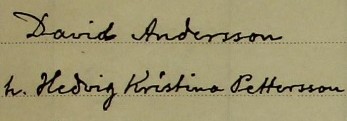 David Andersson
h. Hedvig Kristina Pettersson